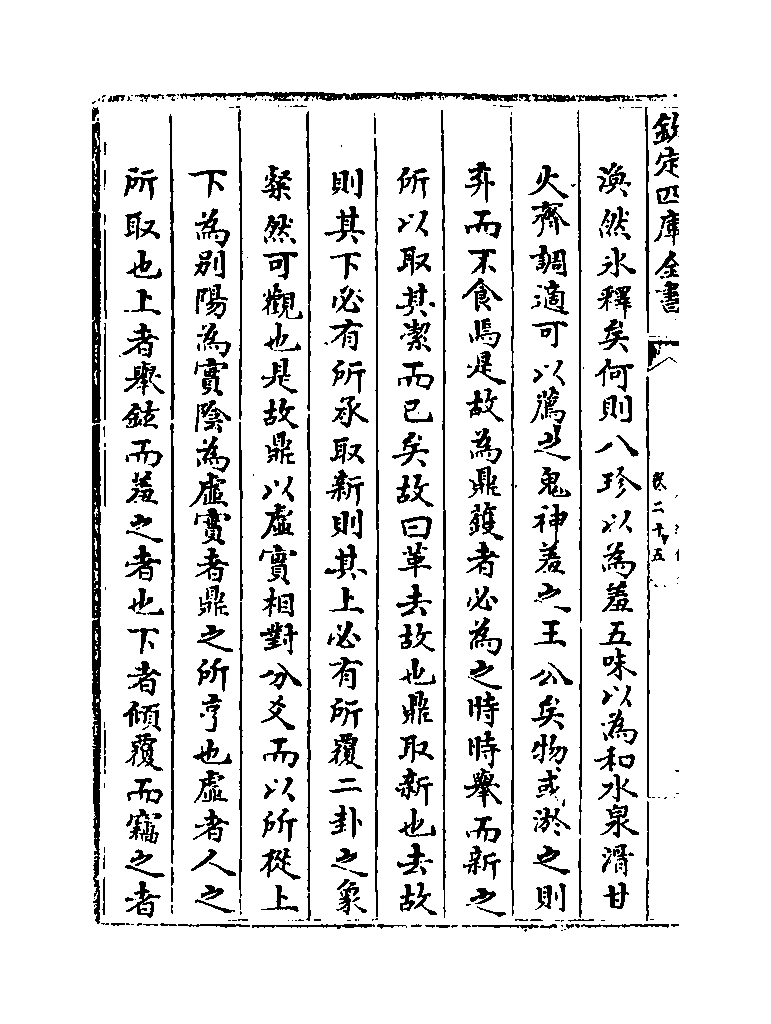 欽定四庫全書
卷二十五
渙然氷釋矣何則八珍以為羞五味以為和水泉滑甘
火齊調適可以薦之鬼神羞之王公矣物或淤之則
弃而不食焉是故為鼎鑊者必為之時時舉而新之
所以取其潔而已矣故曰革去故也鼎取新也去故
則其下必有所承取新則其上必有所覆二卦之象
粲然可觀也是故鼎以虛實相對分爻而以所從上
下為别陽為實陰為虛實者鼎之所亨也虛者人之
所取也上者舉鉉而羞之者也下者傾覆而竊之者